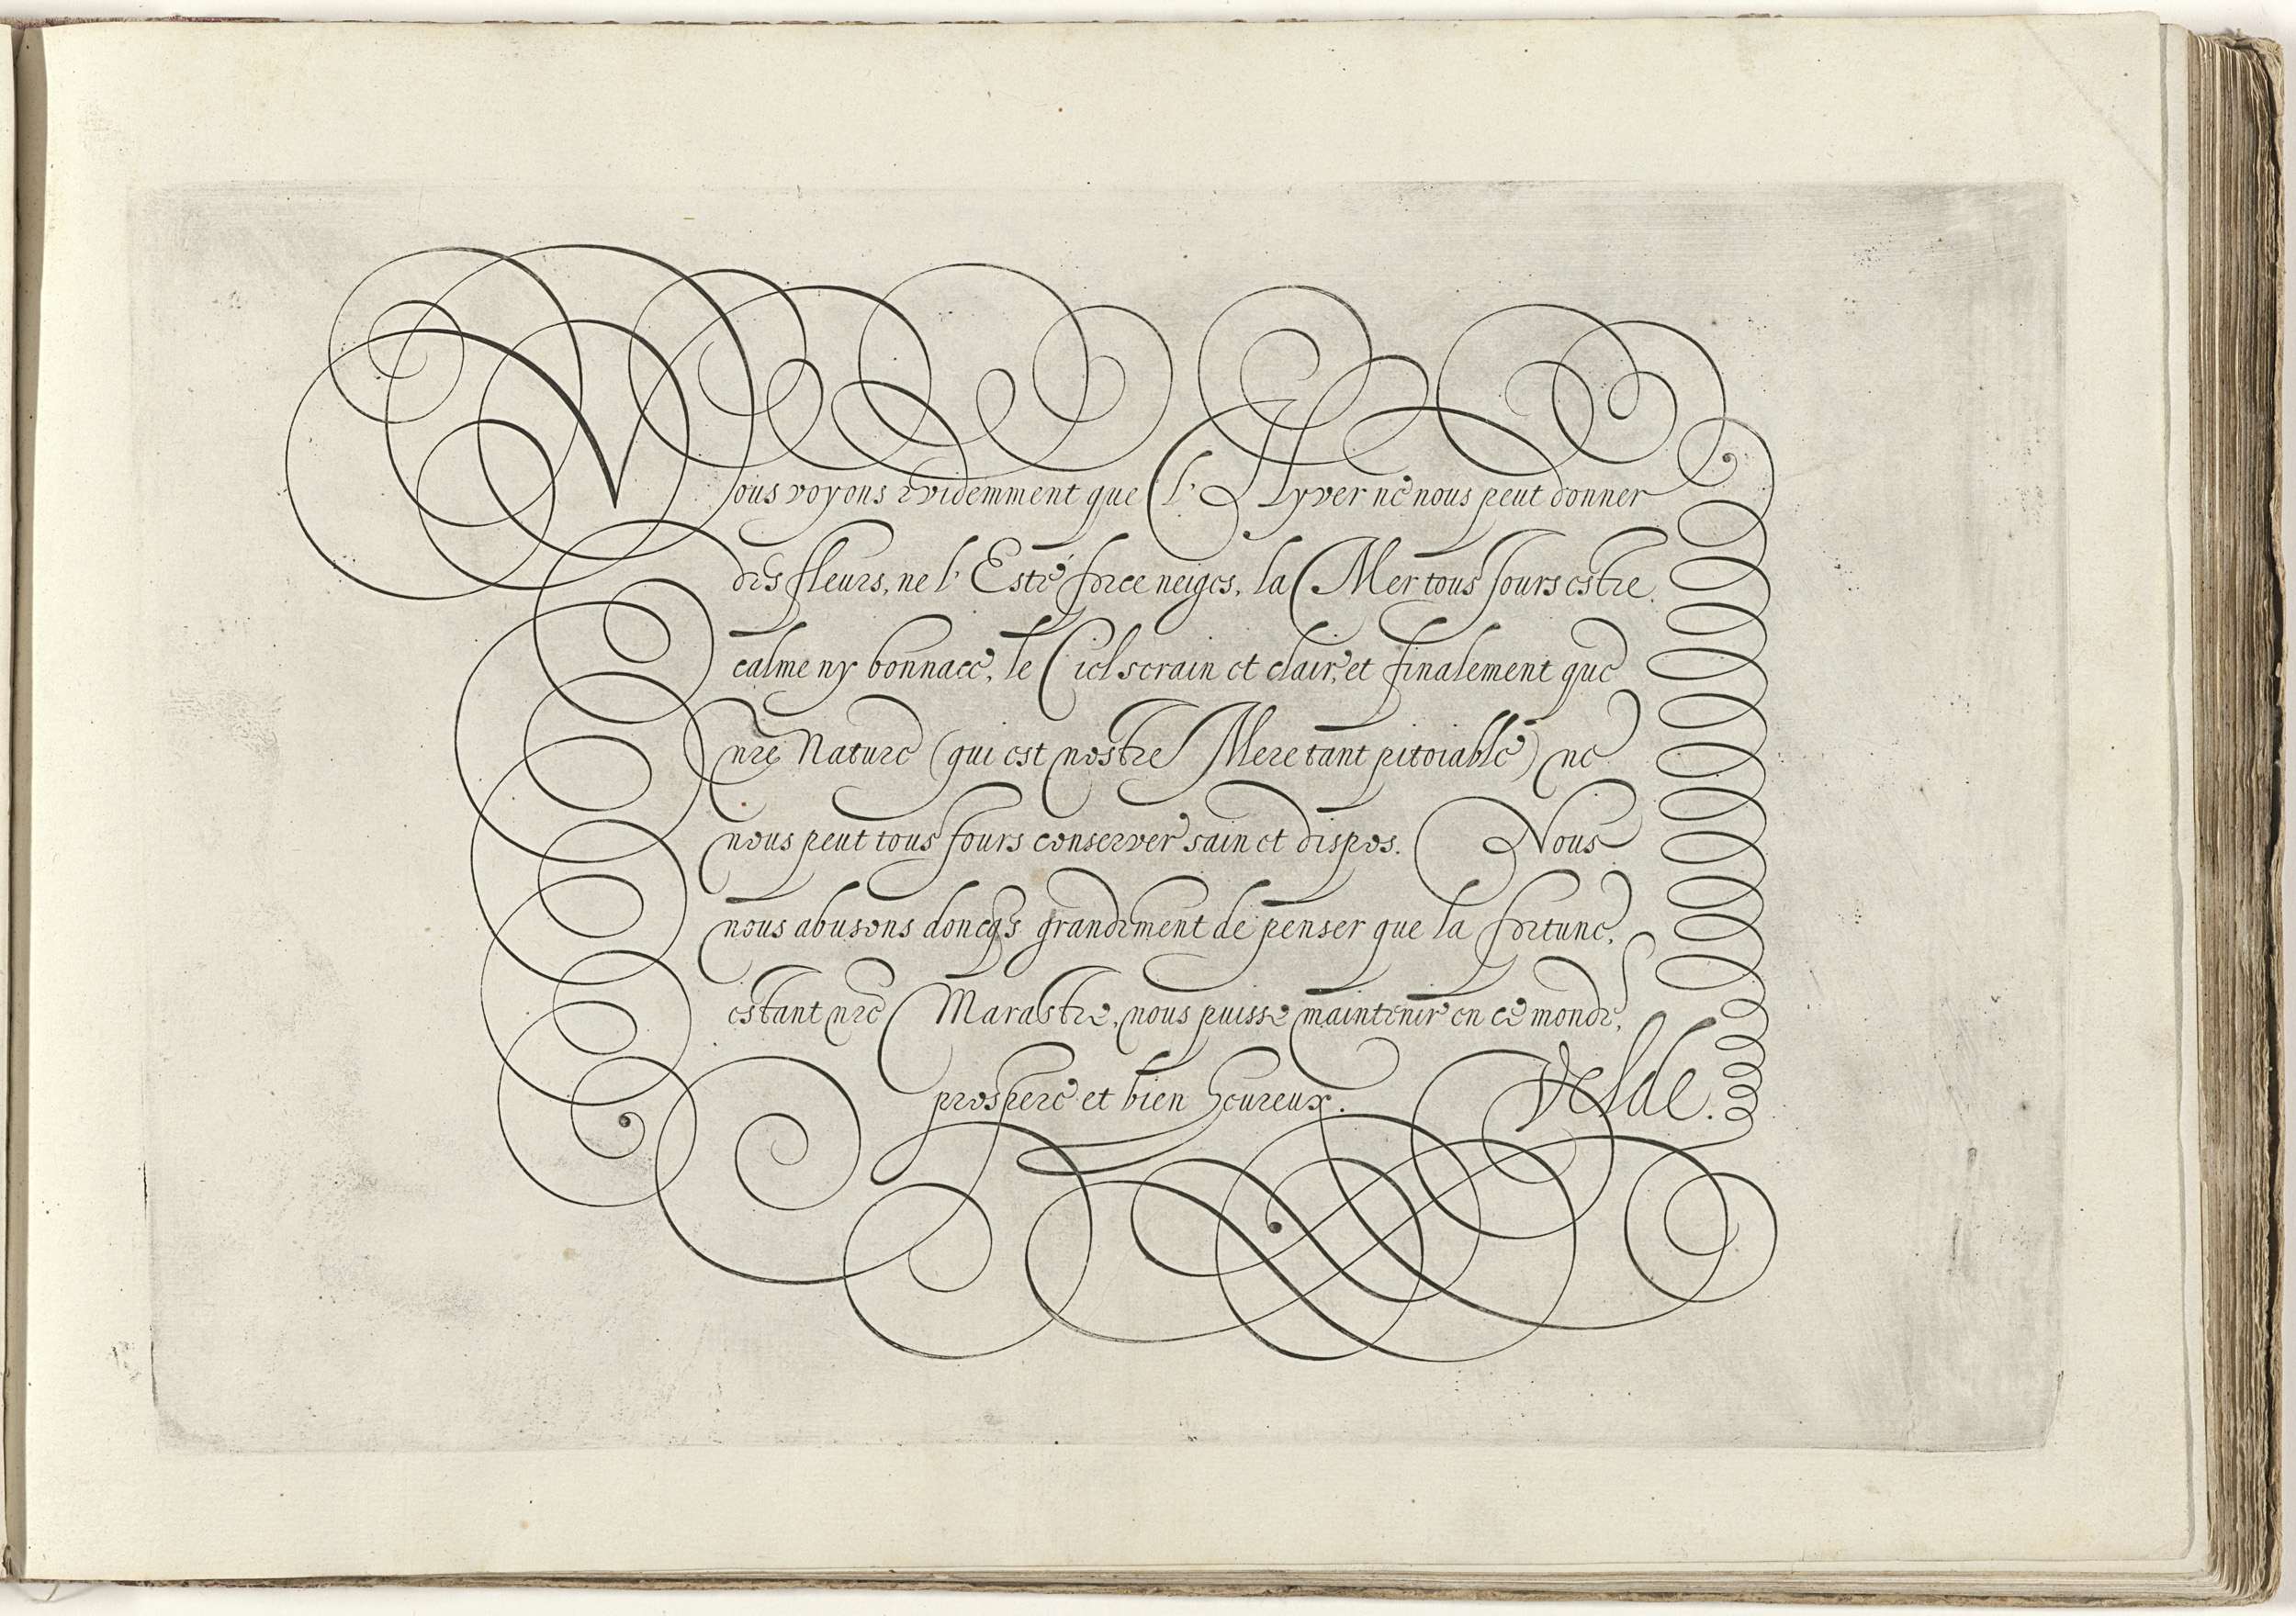 Nous voyons evidemment que l'Hyver ne nous peut donner
des fleurs, ne l'Esté force neiges, la Mer tousjours estre
calme ny bonnace, le Ciel serain et clair, et finalement que
nre Nature (qui est nostre Mere tant pitoiable) ne
nous peut tousjours conserver sain et dispos. Nous
nous abusons doncqs grandement de penser que la fortune,
estant nre Marastre, nous puisse maintenir en ce monde,
prospere et bien heureux.
Velde.